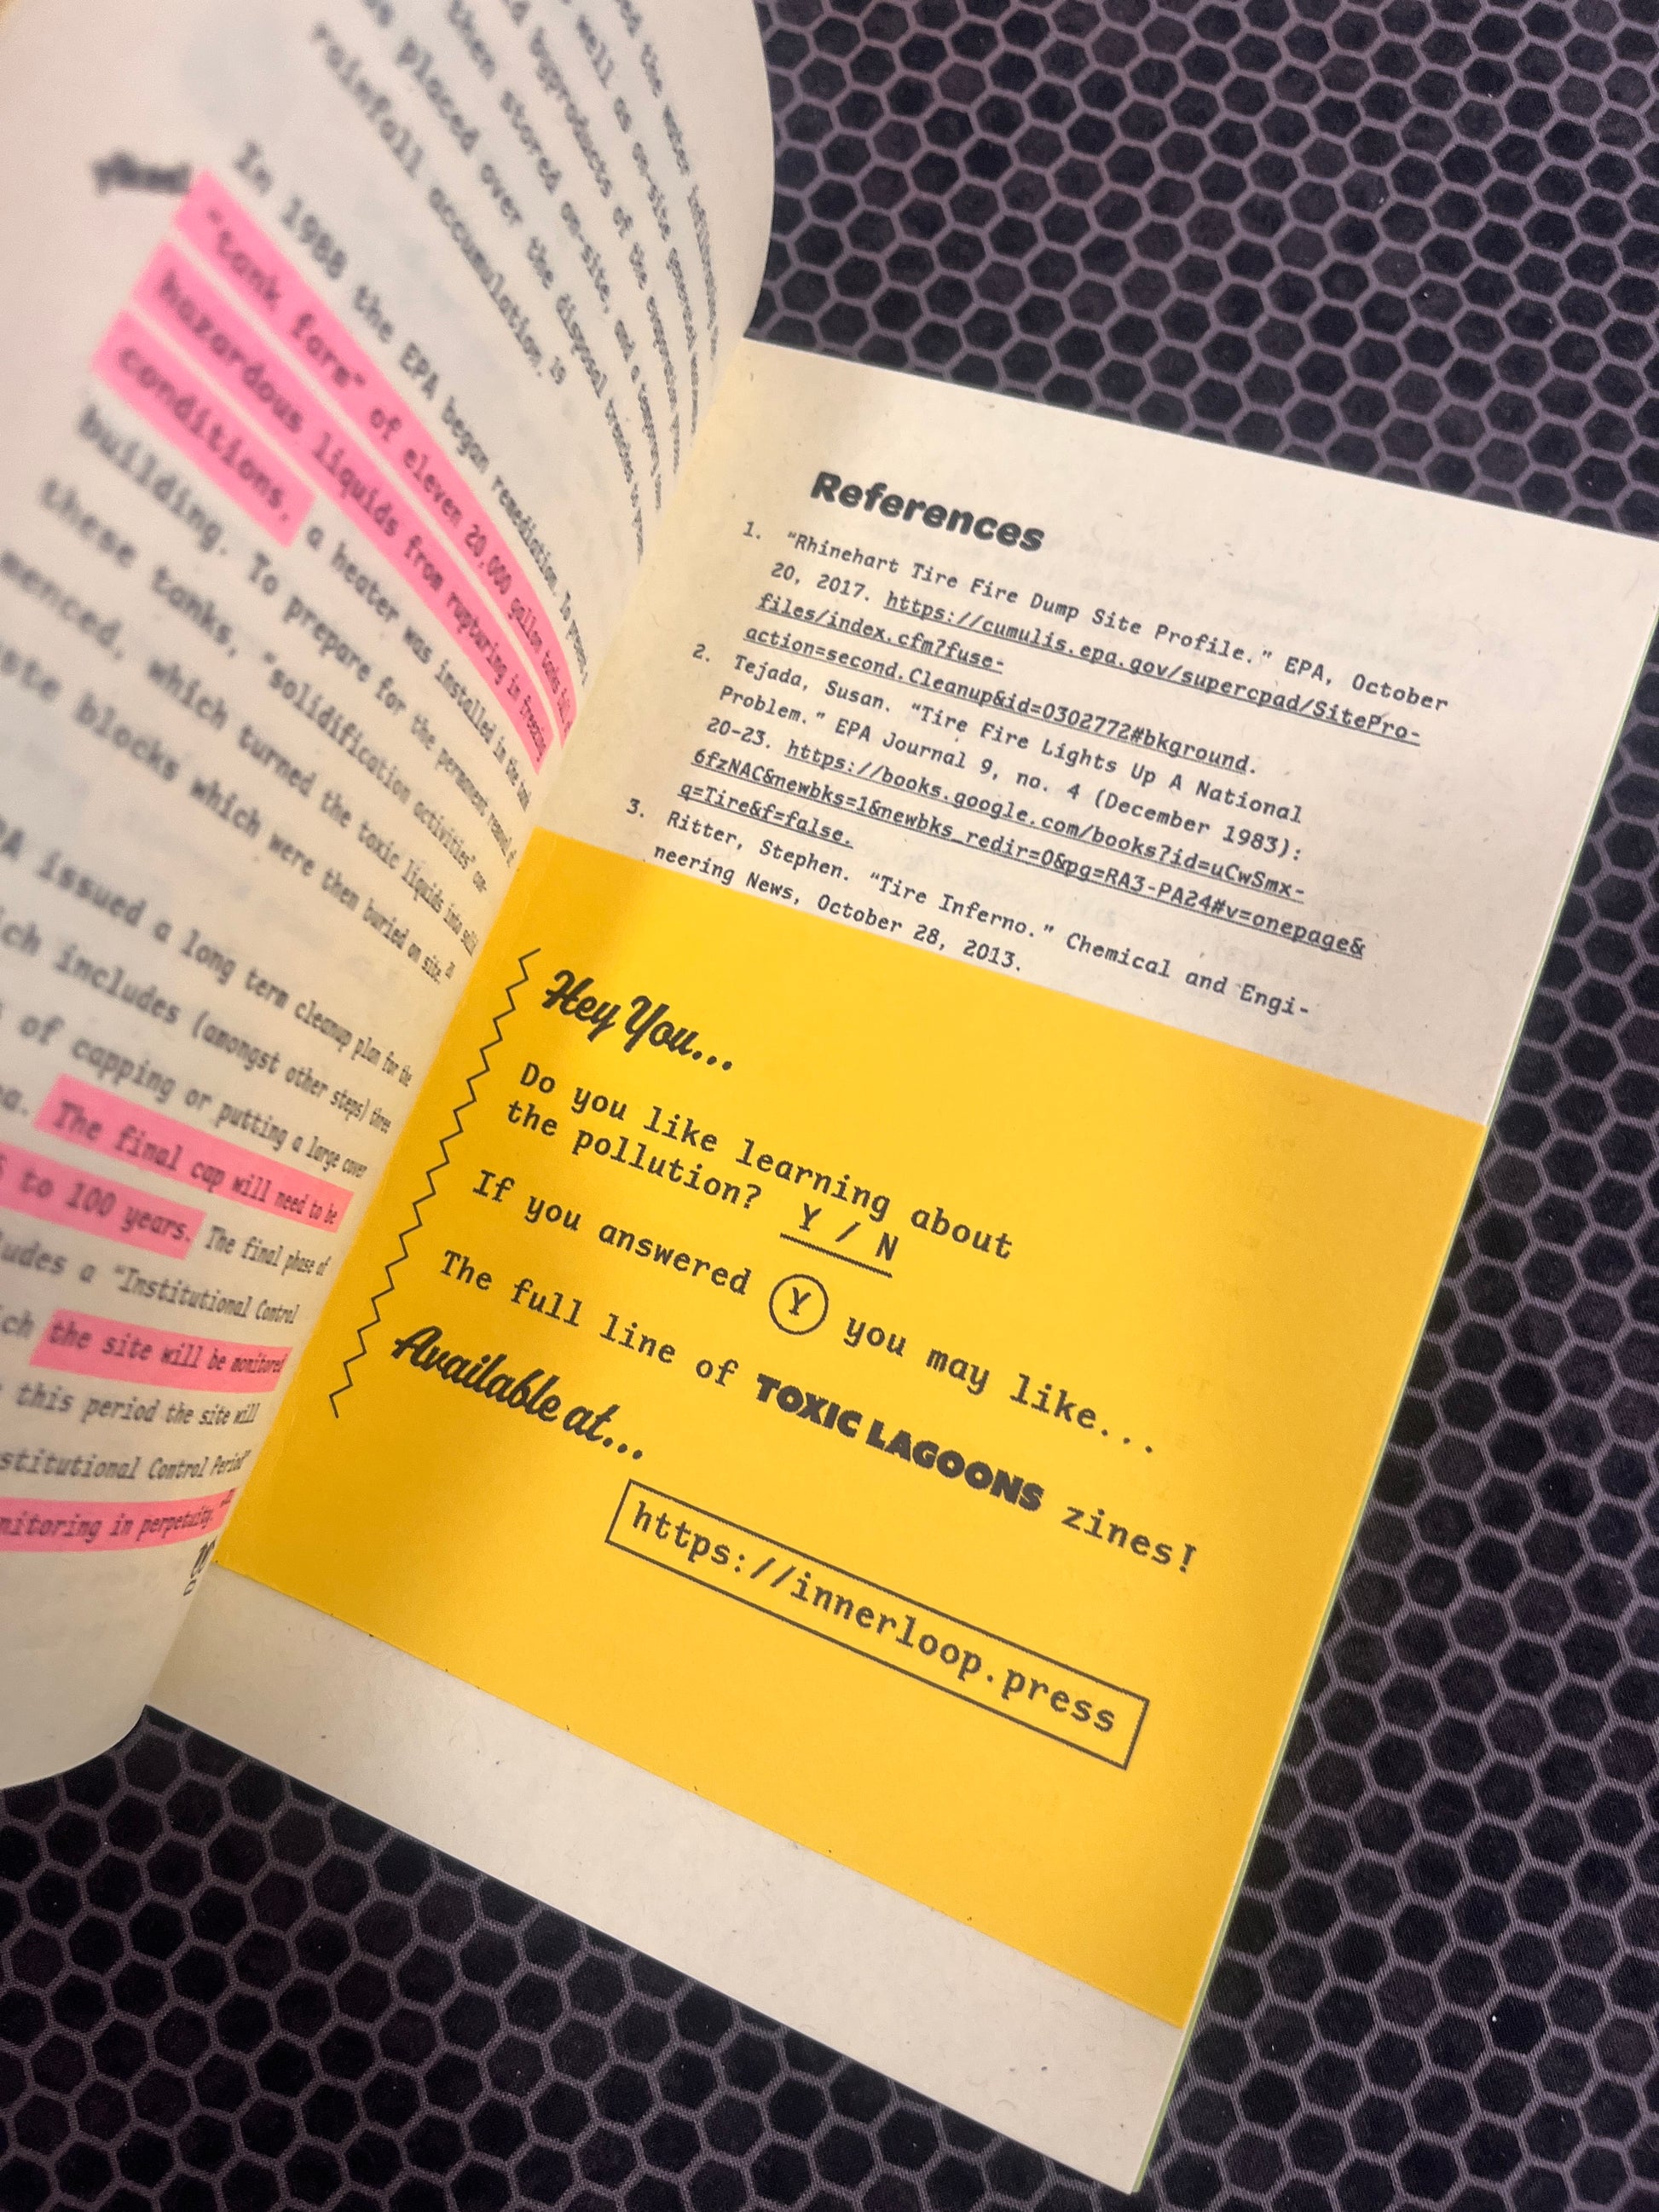 the water infiltrating
well as on-site generated
byproducts of the
then stored on-site, and a temporary
placed over the disposal trenches to
rainfall accumulation. 19
In 1988 the EPA began remediation. To
"tank farm" of eleven 20,000 gallon tanks
hazardous liquids from rupturing in freezing
conditions, a heater was installed in the tank
building. To prepare for the permanent removal of
these tanks, "solidification activities" com-
menced, which turned the toxic liquids into solid
blocks which were then buried on site.
issued a long term cleanup plan for the
which includes (amongst other steps) three
of capping or putting a large cover
The final cap will need to be
to 100 years. The final phase of
a "Institutional Control
the site will be monitored
this period the site will
Institutional Control Period"
monitoring in perpetuity."
References
1. "Rhinehart Tire Fire Dump Site Profile." EPA, October
20, 2017. https://cumulis.epa.gov/supercpad/SitePro-
files/index.cfm?fuse-
action=second.Cleanup&id=0302772#bkground.
2. Tejada, Susan. "Tire Fire Lights Up A National
Problem." EPA Journal 9, no. 4 (December 1983):
20-23. https://books.google.com/books?id=uCwSmx-
6fzNAC&newbks=1&newbks_redir=0&pg=RA3-PA24#v=onepage&
q=Tire&f=false.
3. Ritter, Stephen. "Tire Inferno." Chemical and Engi-
neering News, October 28, 2013.
Hey You...
Do you like learning about
the pollution? Y / N
If you answered Y you may like...
The full line of TOXIC LAGOONS zines!
Available at...
https://innerloop.press